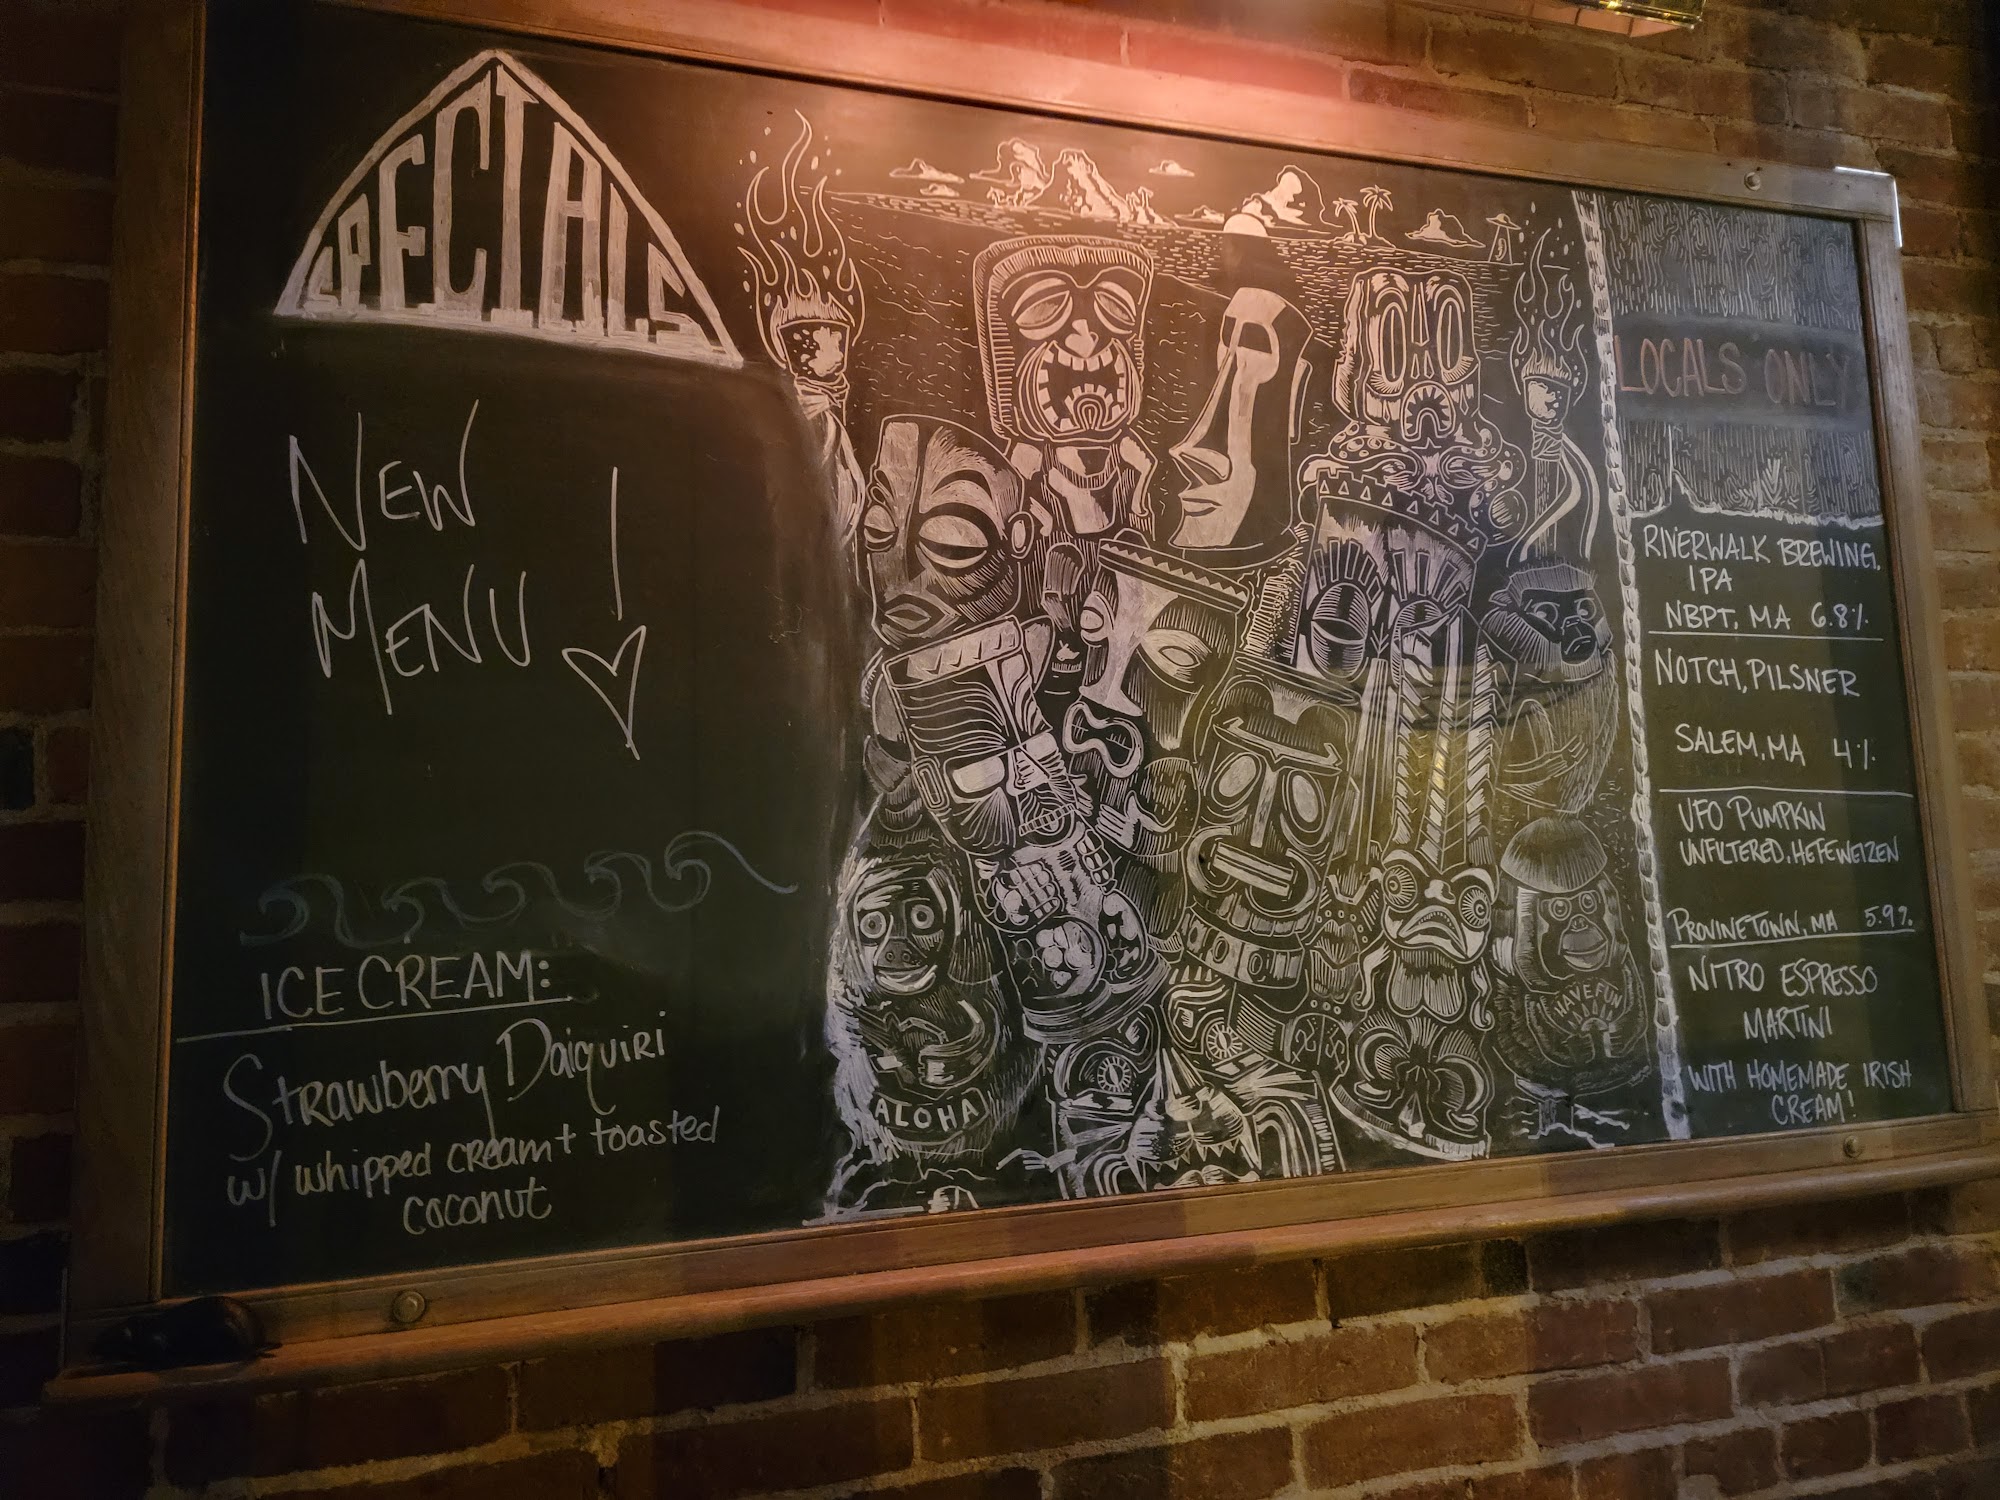 SPECIALS
NEW
MENU !
ICE CREAM:
Strawberry Daiquiri
w/ whipped cream + toasted
coconut
ALOHA
HAVE FUN
LOCALS ONLY
RIVERWALK BREWING.
IPA
NBPT, MA 6.8%
NOTCH, PILSNER
SALEM, MA 4%
UFO PUMPKIN
UNFILTERED. HEFEWEIZEN
PROVINETOWN, MA 5.9%
NITRO ESPRESSO
MARTINI
WITH HOMEMADE IRISH
CREAM!